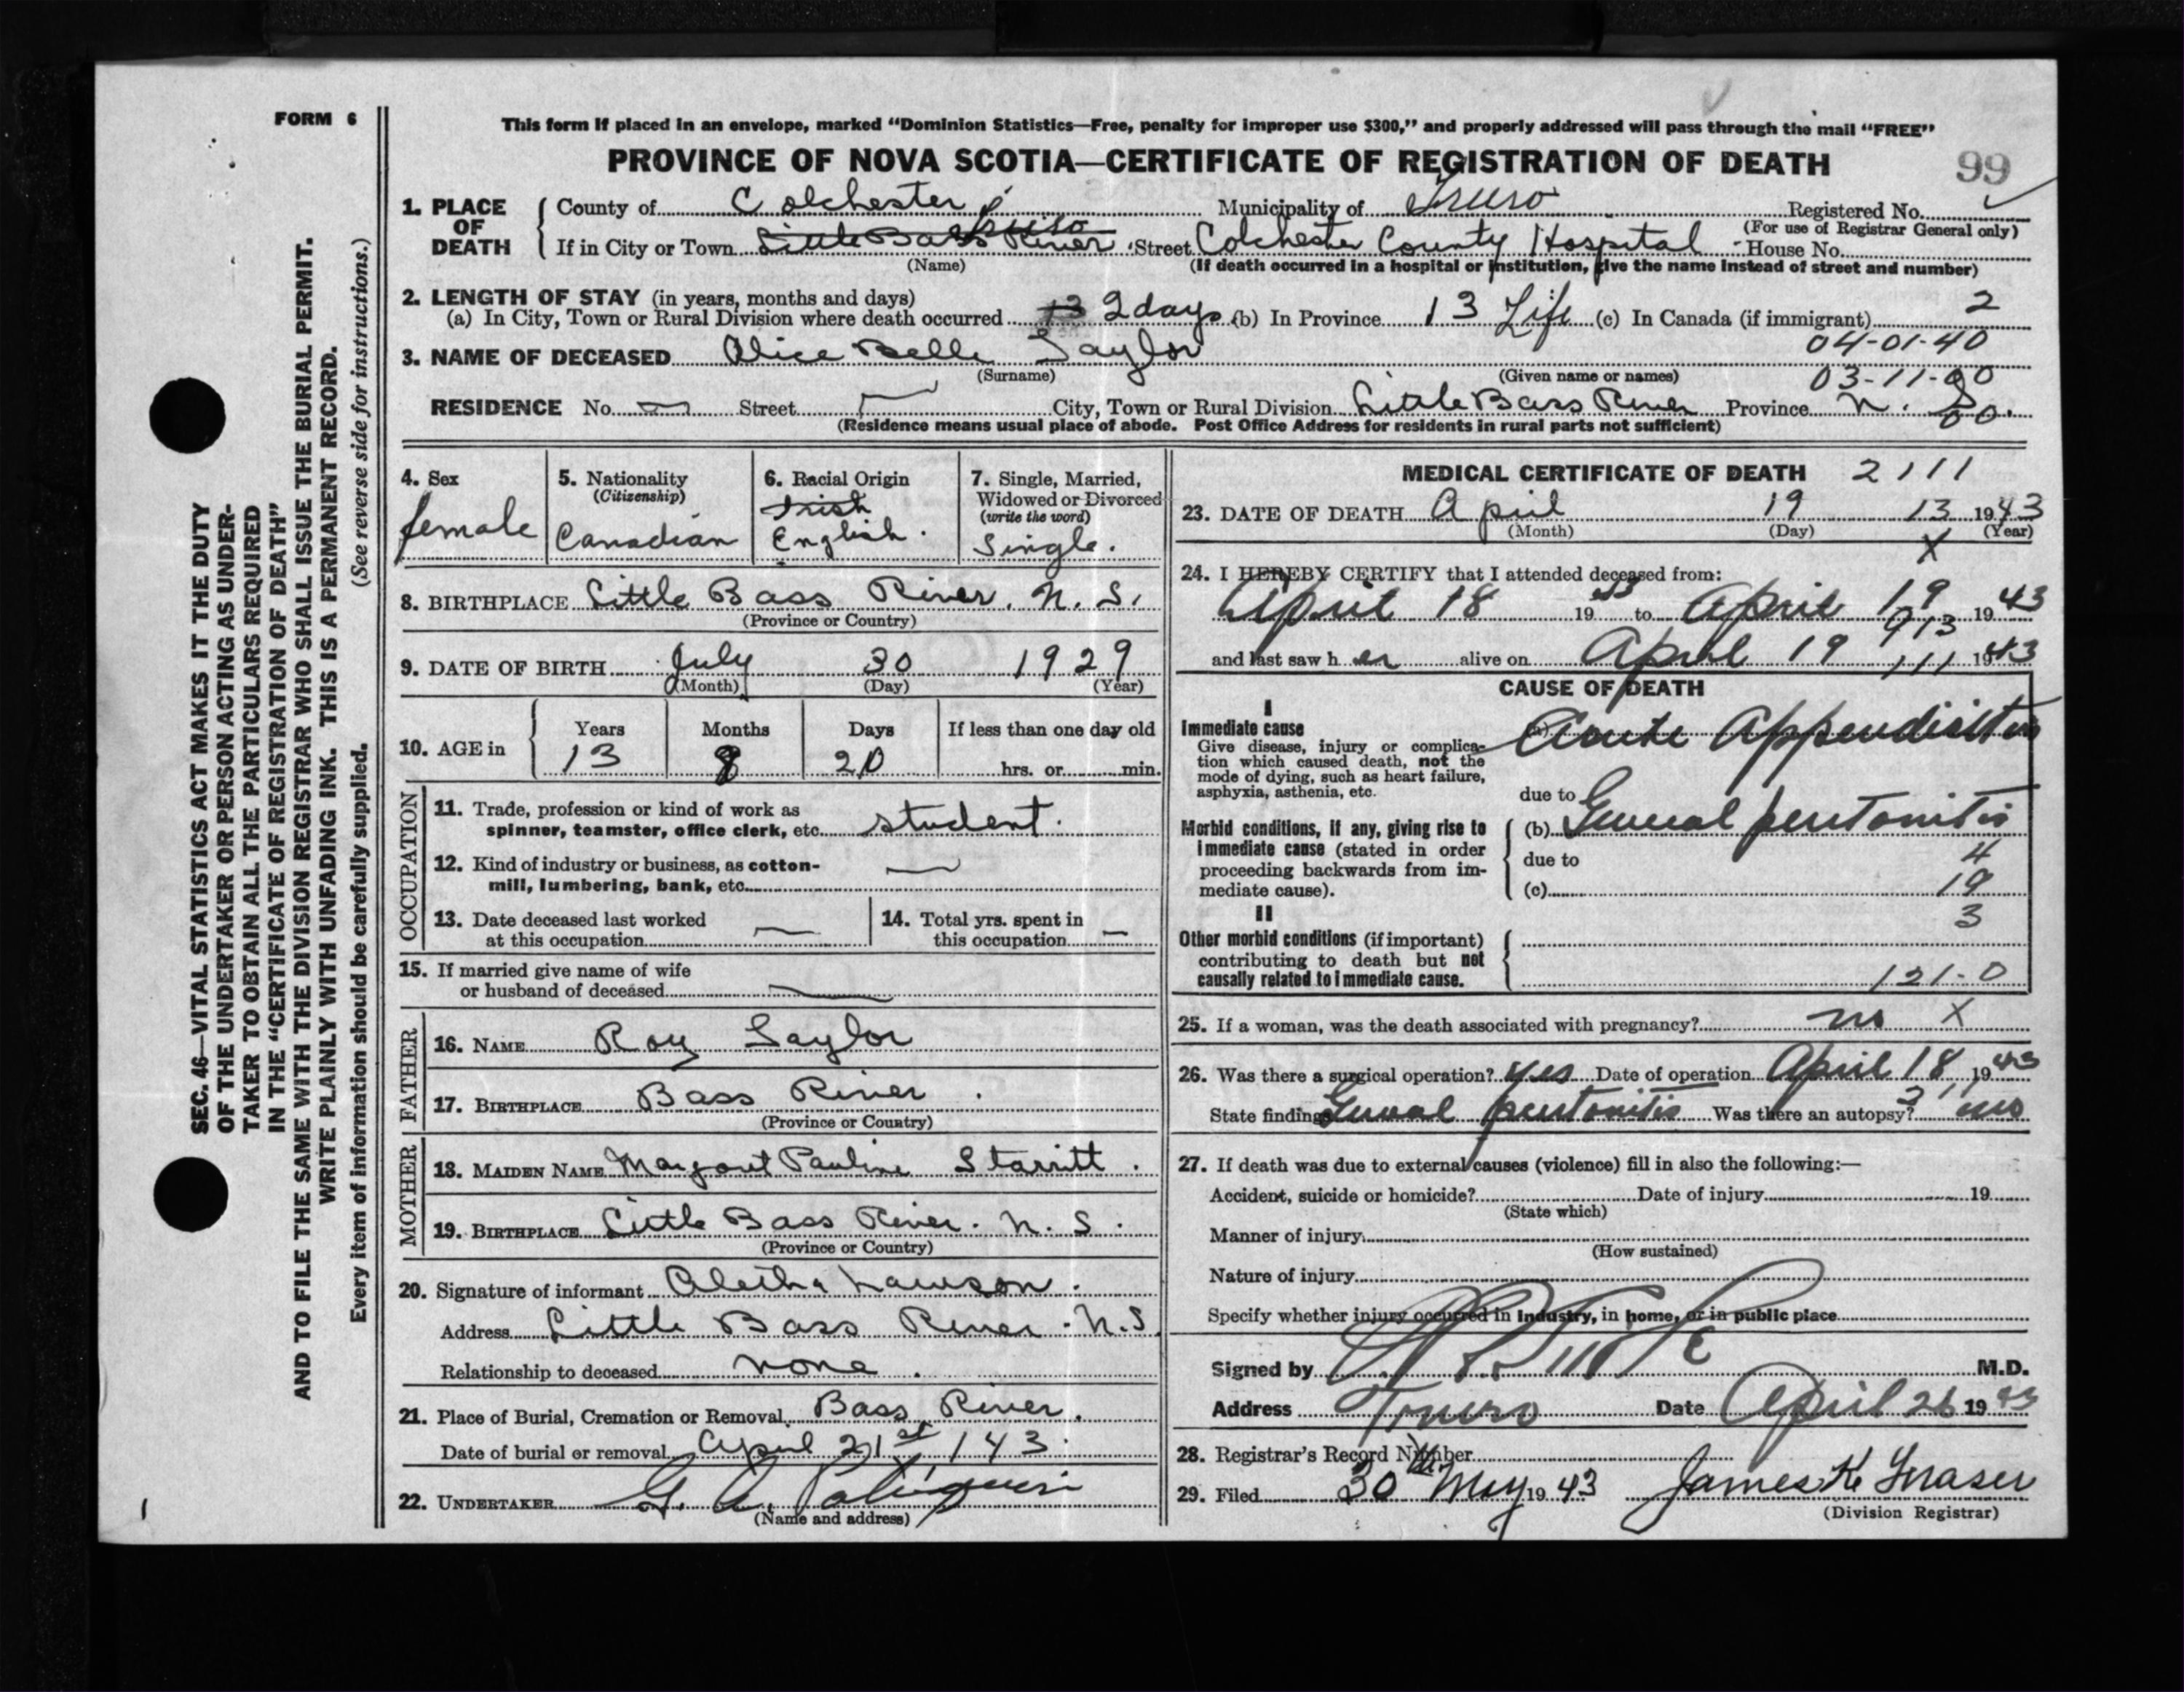 FORM 6
This form if placed in an envelope, marked "Dominion Statistics—Free, penalty for improper use $300," and properly addressed will pass through the mail "FREE"
PROVINCE OF NOVA SCOTIA—CERTIFICATE OF REGISTRATION OF DEATH
99
1. PLACE OF DEATH
County of Colchester Municipality of Truro Registered No.
(For use of Registrar General only)
If in City or Town Little Bass River Truro Street Colchester County Hospital House No.
(Name) (If death occurred in a hospital or institution, give the name instead of street and number)
2. LENGTH OF STAY (in years, months and days)
(a) In City, Town or Rural Division where death occurred 13 2 days (b) In Province 13 Life (c) In Canada (if immigrant) 2
04-01-40
3. NAME OF DECEASED Alice Belle Taylor
(Surname) (Given name or names) 03-11-00
RESIDENCE No. — Street — City, Town or Rural Division Little Bass River Province N. S.
00
(Residence means usual place of abode. Post Office Address for residents in rural parts not sufficient)
4. Sex
female
5. Nationality
(Citizenship)
Canadian
6. Racial Origin
Irish
English.
7. Single, Married, Widowed or Divorced
(write the word)
Single.
8. BIRTHPLACE Little Bass River, N. S.
(Province or Country)
9. DATE OF BIRTH July 30 1929
(Month) (Day) (Year)
10. AGE in
Years Months Days If less than one day old
13 8 20 hrs. or min.
OCCUPATION
11. Trade, profession or kind of work as
spinner, teamster, office clerk, etc. student.
12. Kind of industry or business, as cotton-
mill, lumbering, bank, etc. —
13. Date deceased last worked
at this occupation —
14. Total yrs. spent in
this occupation —
15. If married give name of wife
or husband of deceased —
FATHER
16. NAME Roy Taylor
17. BIRTHPLACE Bass River.
(Province or Country)
MOTHER
18. MAIDEN NAME Margaret Pauline Starritt.
19. BIRTHPLACE Little Bass River. N. S.
(Province or Country)
20. Signature of informant Aletha Lawson.
Address Little Bass River. N.S.
Relationship to deceased none.
21. Place of Burial, Cremation or Removal Bass River.
Date of burial or removal April 21st /43.
22. UNDERTAKER G. A.
(Name and address)
MEDICAL CERTIFICATE OF DEATH 2111
23. DATE OF DEATH April 19 13 1943
(Month) (Day) (Year)
X
24. I HEREBY CERTIFY that I attended deceased from:
April 18 1943 to April 19 1943
913
and last saw her alive on April 19 111 1943
CAUSE OF DEATH
I
Immediate cause
Give disease, injury or complica-
tion which caused death, not the
mode of dying, such as heart failure,
asphyxia, asthenia, etc.
(a) Acute Appendicitis
due to
Morbid conditions, if any, giving rise to
immediate cause (stated in order
proceeding backwards from im-
mediate cause).
(b) General peritonitis
due to 4
(c) 19
3
II
Other morbid conditions (if important)
contributing to death but not
causally related to immediate cause.
121-0
25. If a woman, was the death associated with pregnancy? no X
26. Was there a surgical operation? yes Date of operation April 18 1943
State findings General peritonitis Was there an autopsy? no
27. If death was due to external causes (violence) fill in also the following:—
Accident, suicide or homicide? Date of injury 19
(State which)
Manner of injury
(How sustained)
Nature of injury
Specify whether injury occurred in industry, in home, or in public place
Signed by M.D.
Address Truro Date April 26 1943
28. Registrar's Record Number
29. Filed 30th May 1943 James K Fraser
(Division Registrar)
SEC. 46—VITAL STATISTICS ACT MAKES IT THE DUTY
OF THE UNDERTAKER OR PERSON ACTING AS UNDER-
TAKER TO OBTAIN ALL THE PARTICULARS REQUIRED
IN THE "CERTIFICATE OF REGISTRATION OF DEATH"
AND TO FILE THE SAME WITH THE DIVISION REGISTRAR WHO SHALL ISSUE THE BURIAL PERMIT.
WRITE PLAINLY WITH UNFADING INK. THIS IS A PERMANENT RECORD.
Every item of information should be carefully supplied. (See reverse side for instructions.)